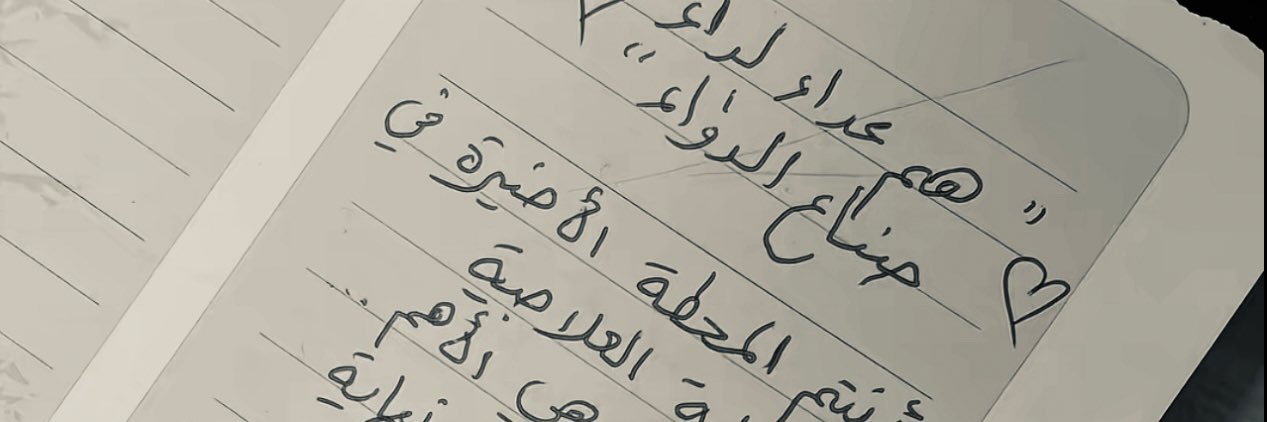 " هم عداء لداء
صناع الدواء "
أنتم المحطة الأخيرة في
العلاجية
هي الأهم ...
نهاية